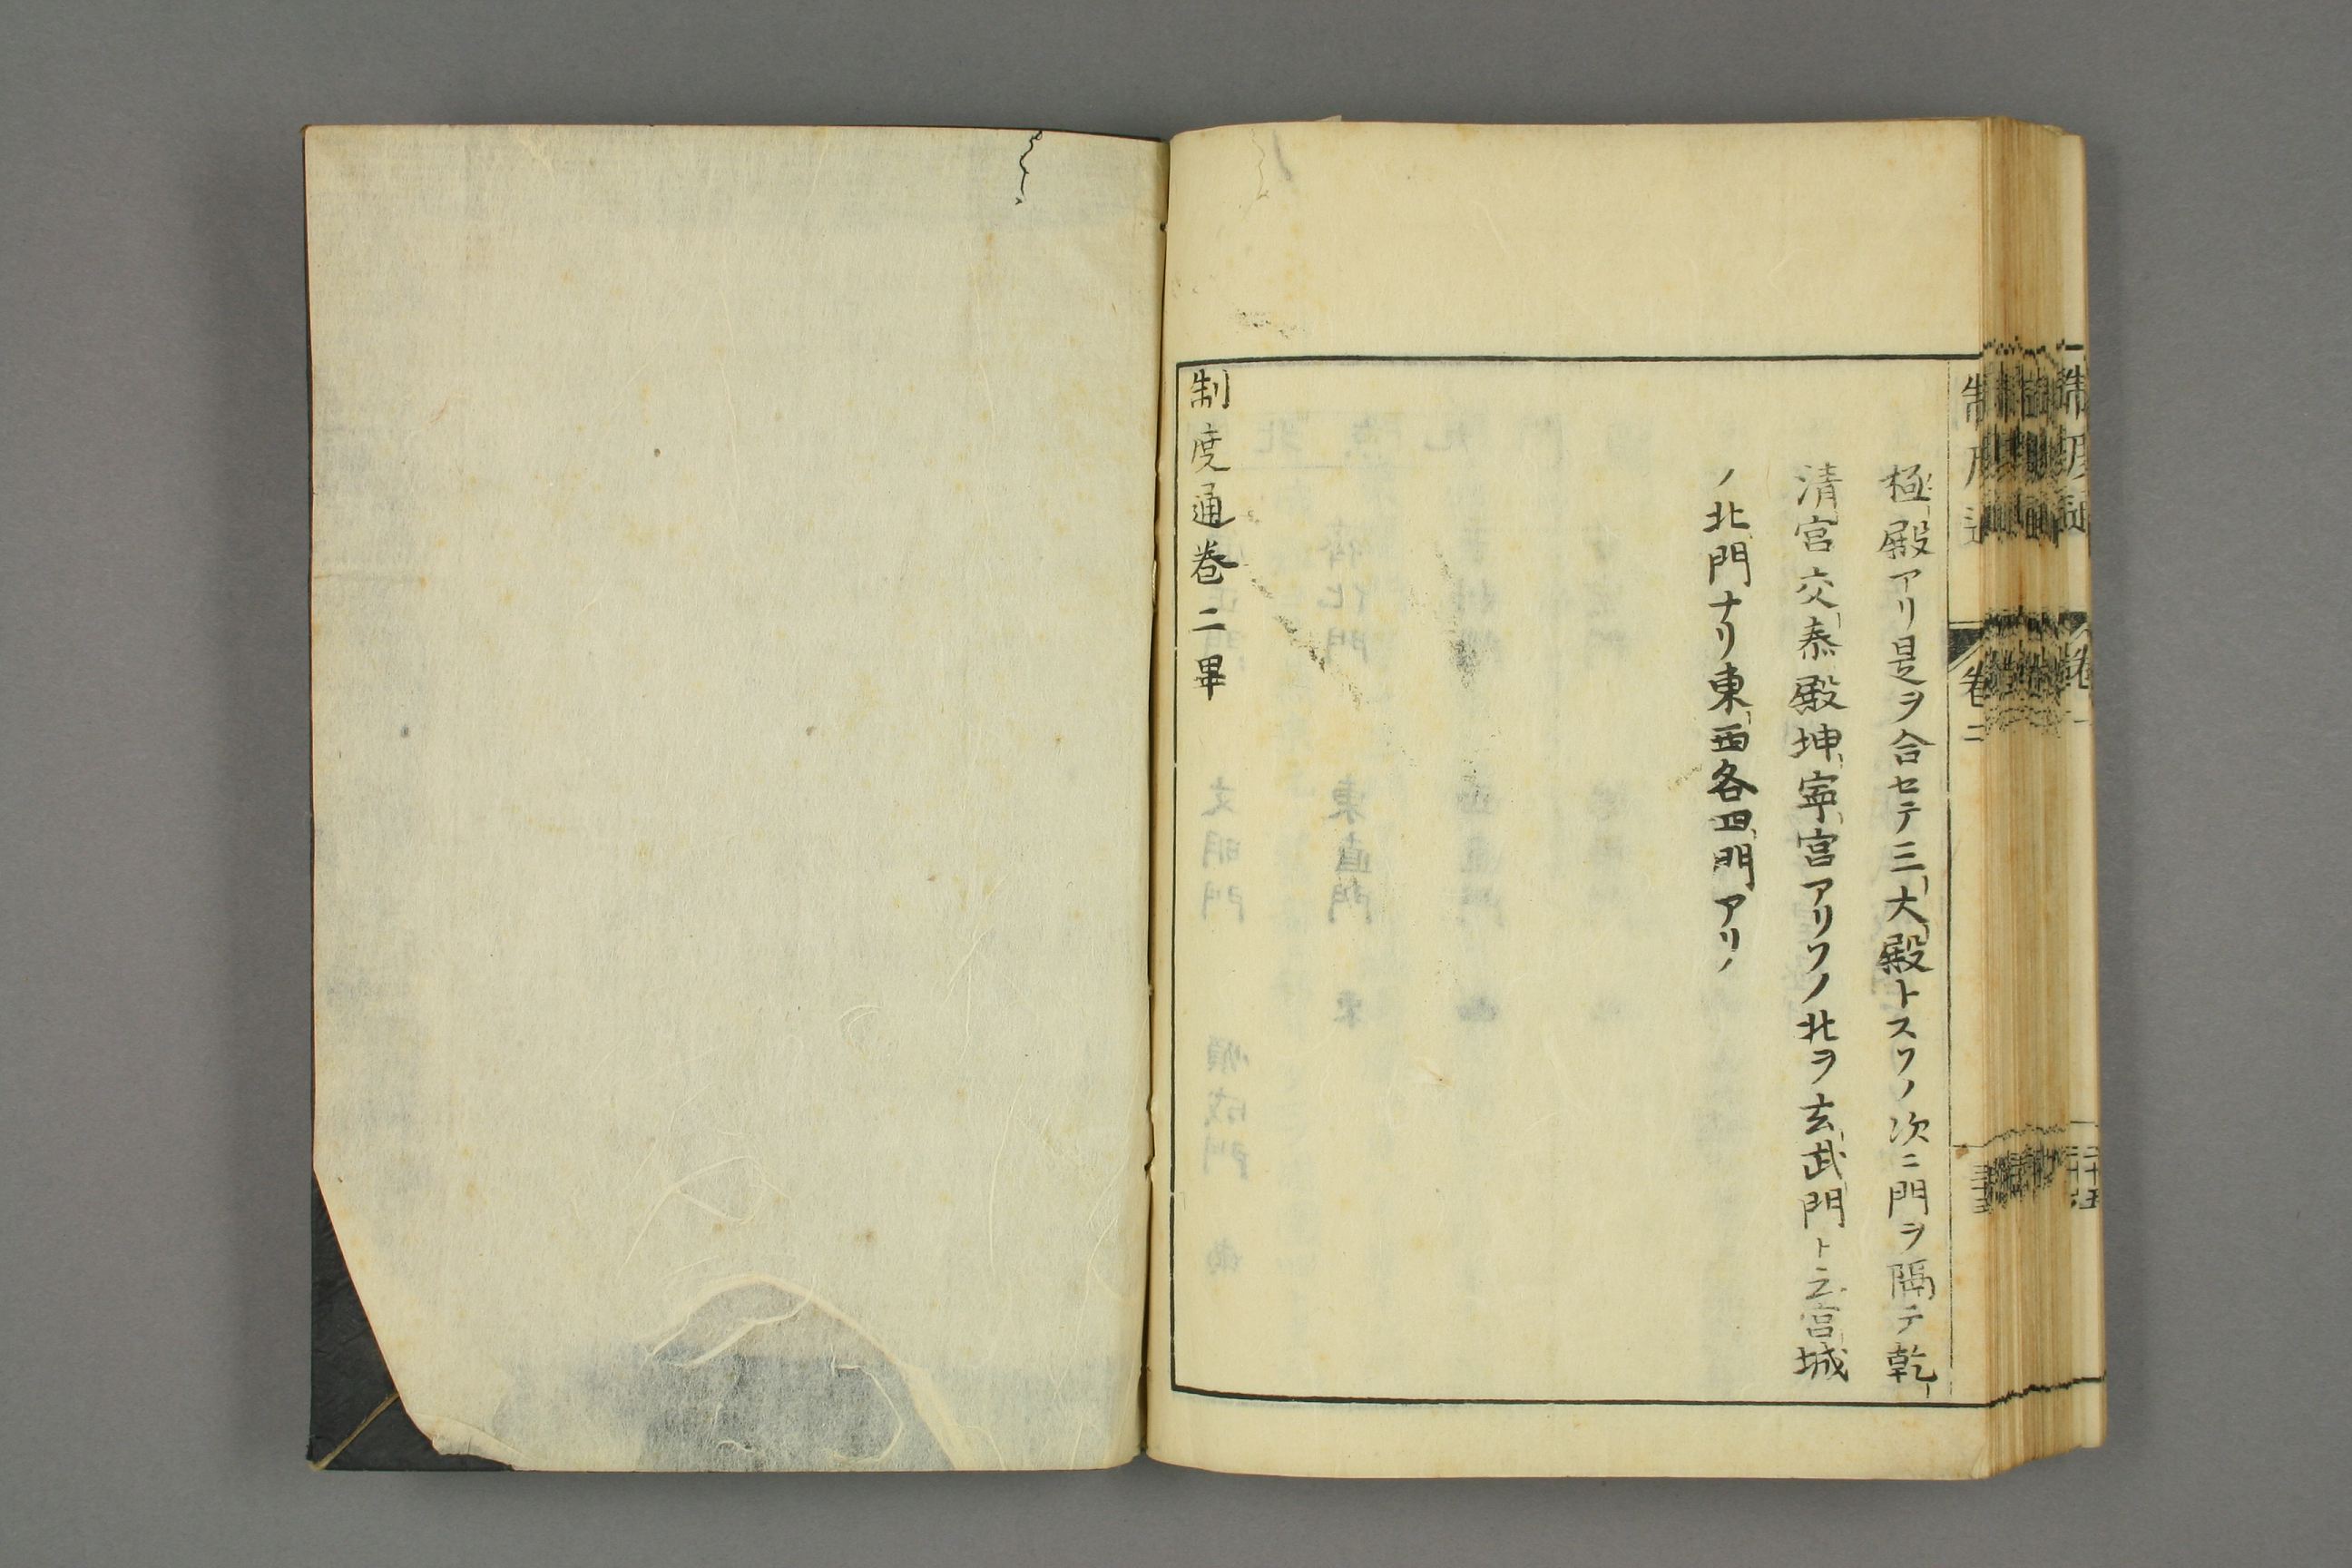 極殿アリ是ヲ合セテ三大殿トスソノ次ニ門ヲ隔テ乾
清宮交泰殿坤寧宮アリソノ北ヲ玄武門ト云宮城
ノ北門ナリ東西各四門アリ
制度通巻二畢
制度通
卷二